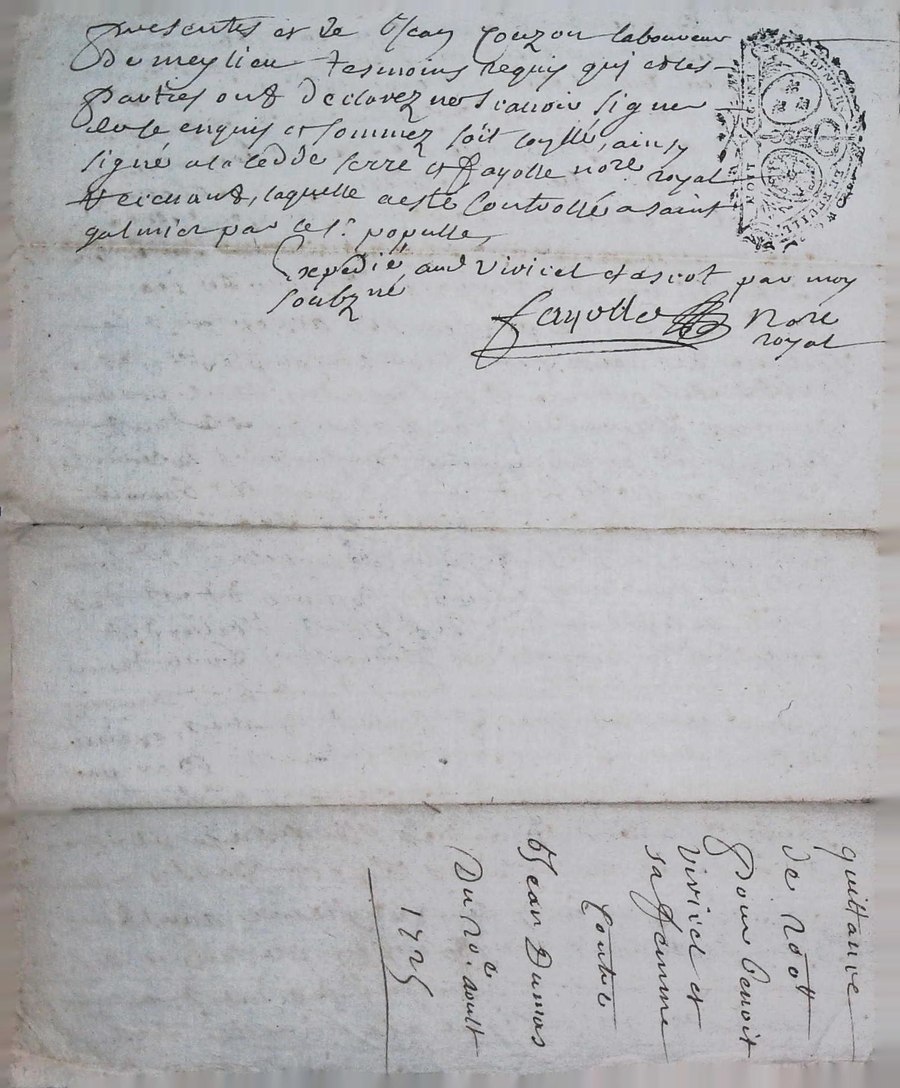 presentes et de Jean Couzon laboureur
de meylieu tesmoins requis qui et les
parties ont declarez ne scavoir signer
de ce enquis et sommez soit scellé, ainsy
signé a la cedde serre et fayolle nore royal
laquelle a esté Controllé a saint
galmier par le sr populle
Expedié aud Viricel et ascot par moy
soubzné
fayolle nore
royal
EN DE LYON
quittance
de 20tt
pour benoit
Viricel et
sa femme
Contre
Jean Dumas
Du 20e aoult
1725